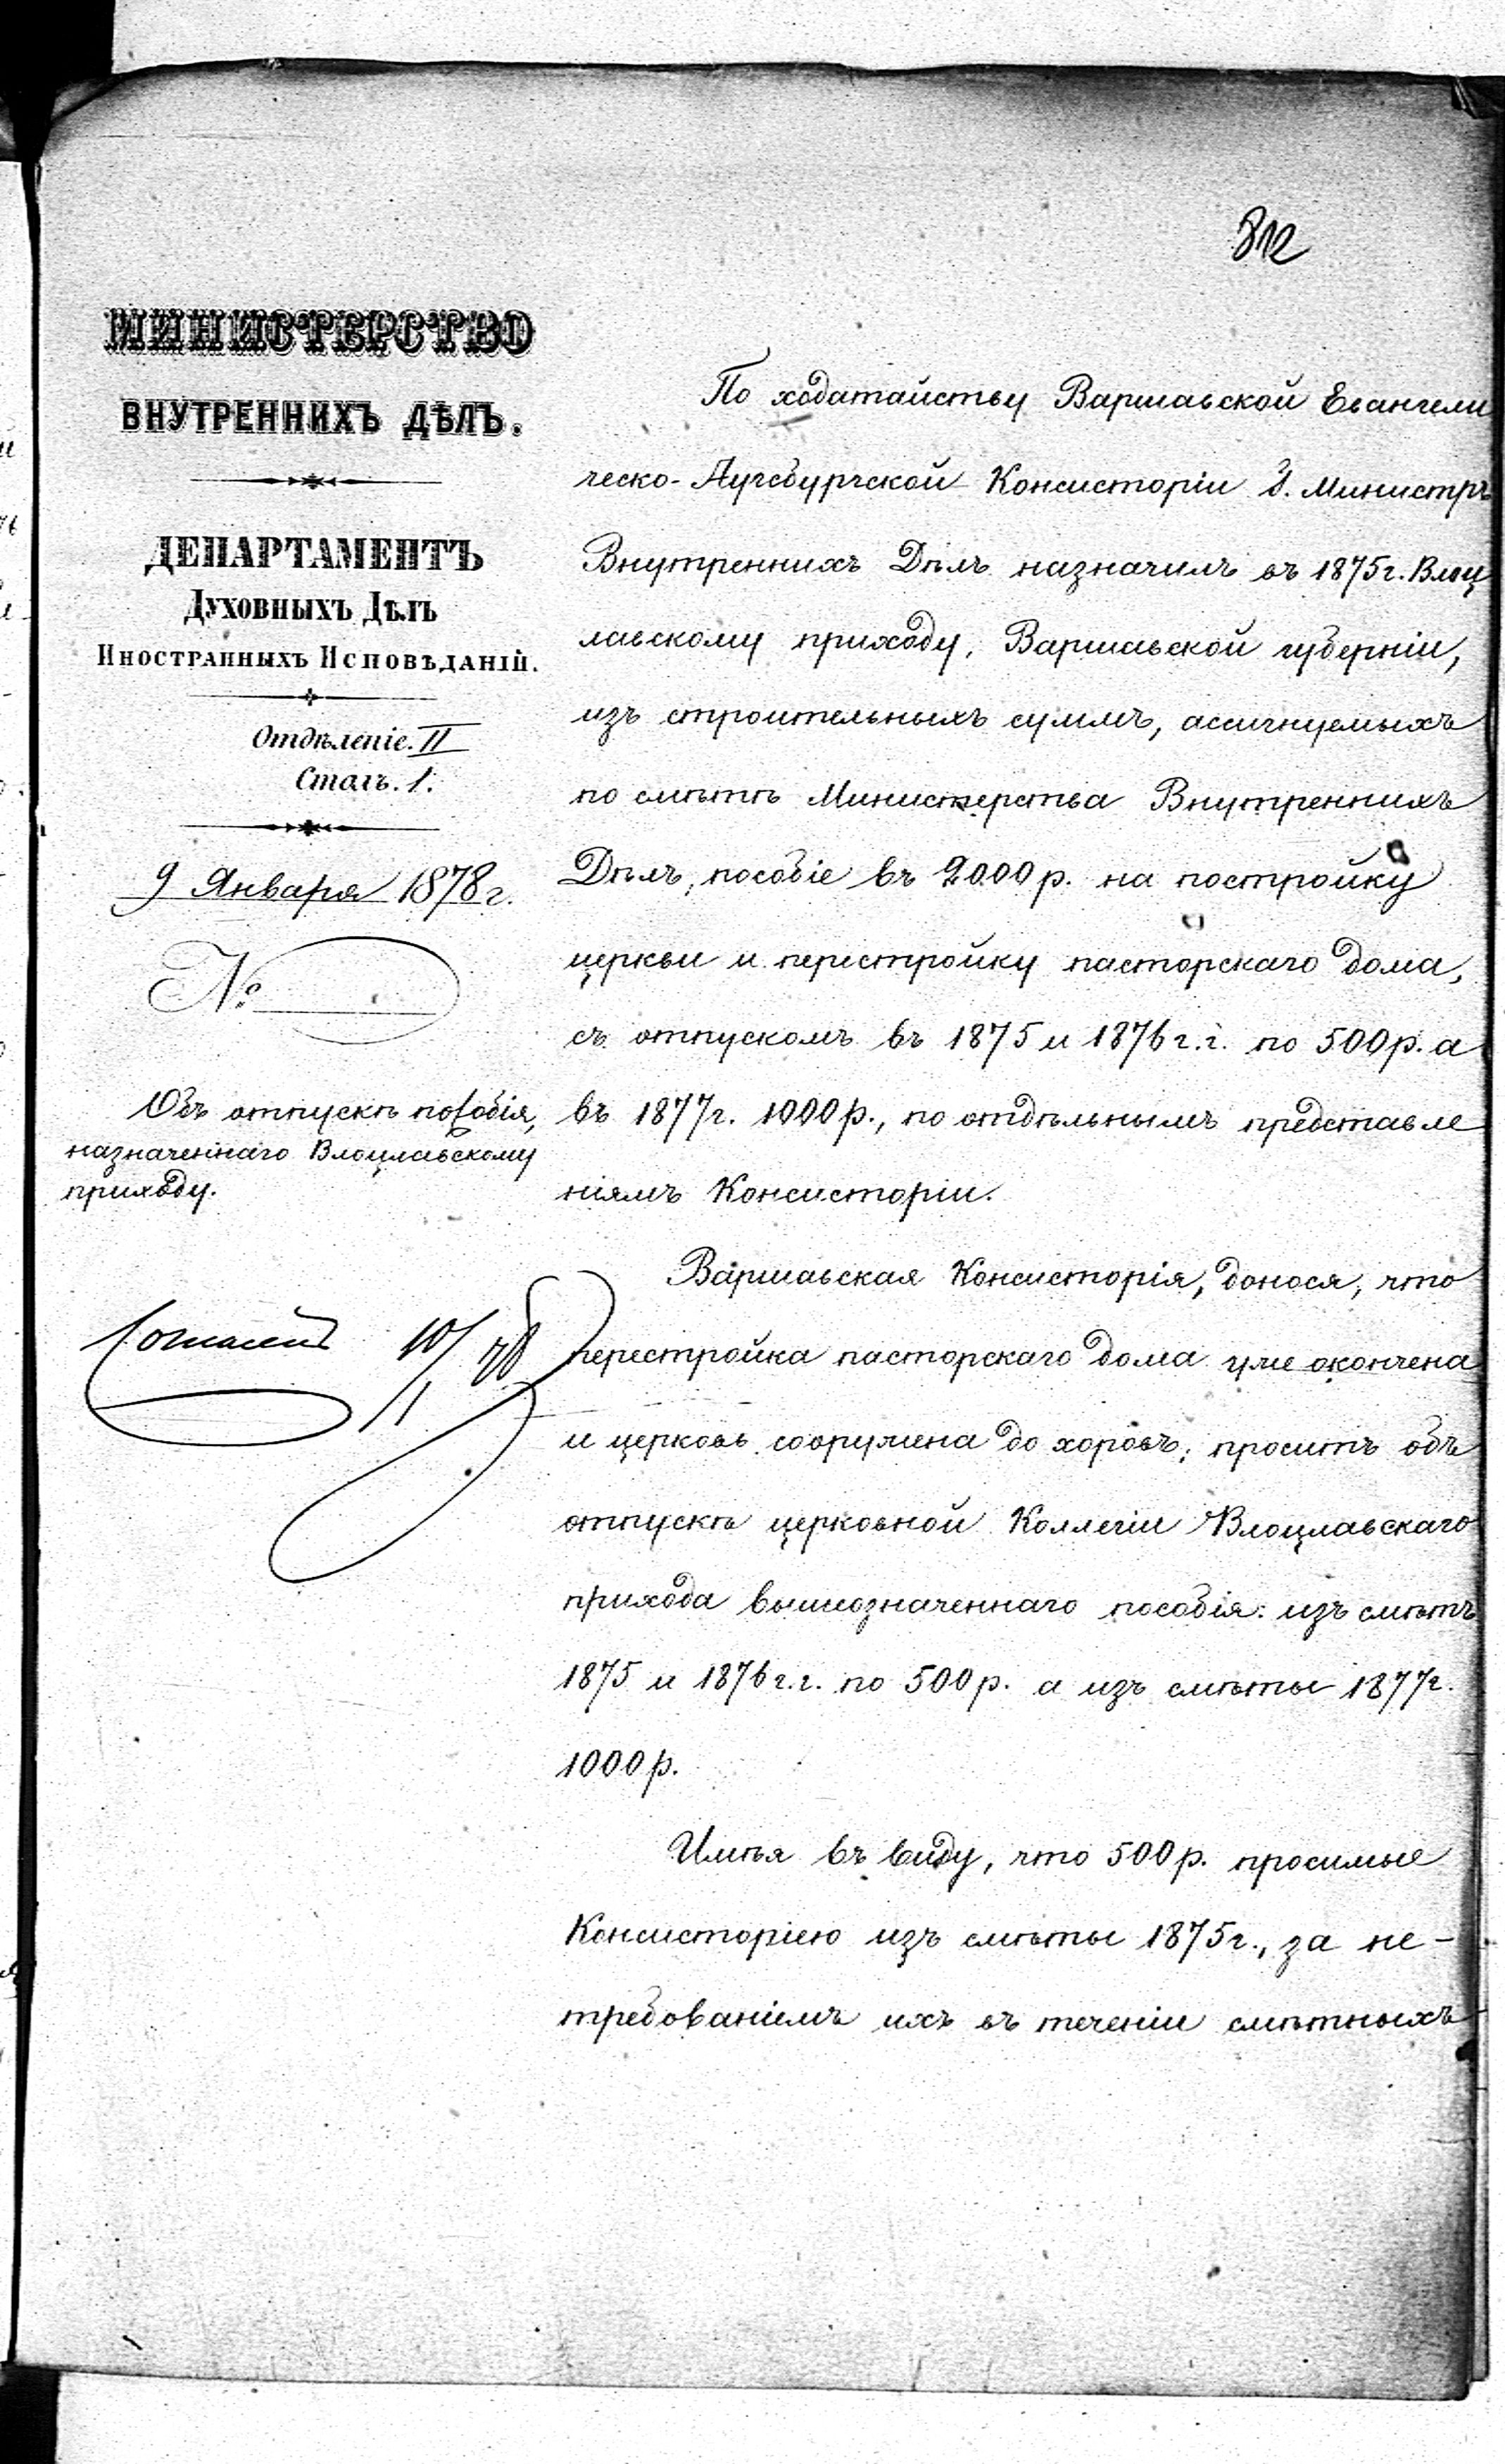 812
МИНИСТЕРСТВО
ВНУТРЕННИХЪ ДѢЛЪ.
ДЕПАРТАМЕНТЪ
Духовныхъ Дѣлъ
Иностранныхъ Исповѣданій.
Отдѣленіе. II
Столъ. 1.
9 Января 1878 г.
№
Объ отпускѣ пособія,
назначеннаго Влоцлавскому
приходу.
10/1 78
По ходатайству Варшавской Евангели
ческо-Аугсбургской Консисторіи г. Министръ
Внутреннихъ Дѣлъ назначилъ въ 1875 г. Влоц
лавскому приходу, Варшавской губерніи,
изъ строительныхъ суммъ, ассигнуемыхъ
по смѣтѣ Министерства Внутреннихъ
Дѣлъ, пособіе въ 2000 р. на постройку
церкви и перестройку пасторскаго дома,
съ отпускомъ въ 1875 и 1876 г.г. по 500 р. а
въ 1877 г. 1000 р., по отдѣльнымъ представле
ніямъ Консисторіи.
Варшавская Консисторія, донося, что
перестройка пасторскаго дома уже окончена
и церковь сооружена до хоровъ, проситъ объ
отпускѣ церковной Коллегіи Влоцлавскаго
прихода вышеозначеннаго пособія: изъ смѣтъ
1875 и 1876 г.г. по 500 р. а изъ смѣты 1877 г.
1000 р.
Имѣя въ виду, что 500 р. просимые
Консисторіею изъ смѣты 1875 г., за не-
требованіемъ ихъ въ теченіи смѣтныхъ